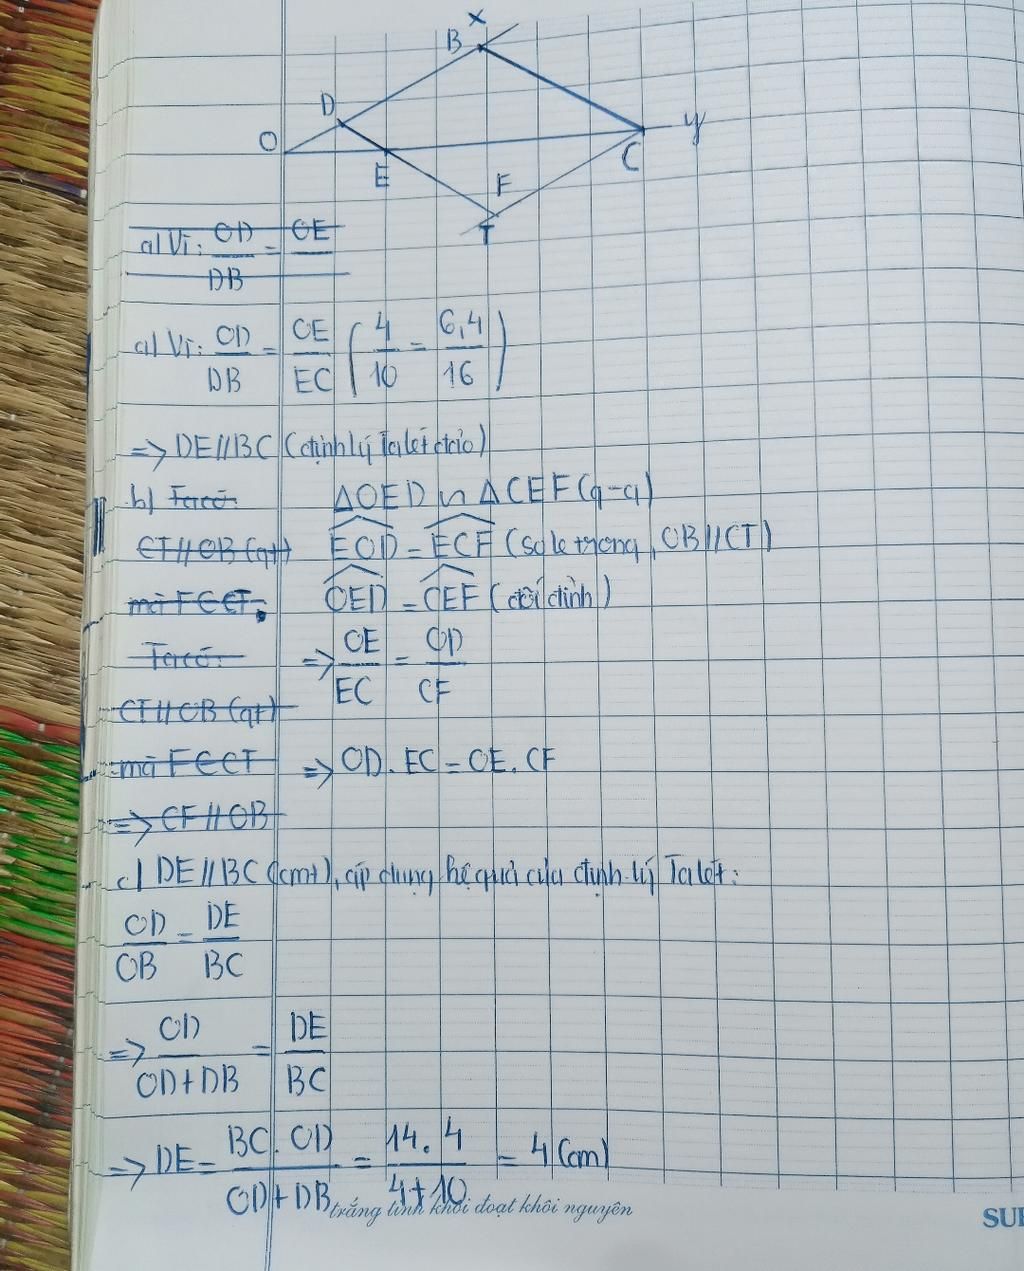 X
B
D
O
y
E
C
F
T
a) Vì: OD/DB = OE
a) Vì: OD/DB = OE/EC (4/10 = 6,4/16)
=> DE//BC (định lý Ta let đảo)
b) Ta có: ΔOED ∽ ΔCEF (g-g)
CT//OB (gt) EOD = ECF (so le trong, OB//CT)
mà F∈CT, OED = CEF (đối đỉnh)
Ta có: => OE/EC = OD/CF
CT//OB (gt)
mà F∈CT => OD . EC = OE . CF
=> CF//OB
c) DE//BC (cmt), áp dụng hệ quả của định lý Ta lét:
OD/OB = DE/BC
=> OD/OD+DB = DE/BC
=> DE = BC . OD/OD+DB = 14 . 4/4+10 = 4 (cm)
trắng tinh khôi đoạt khôi nguyên